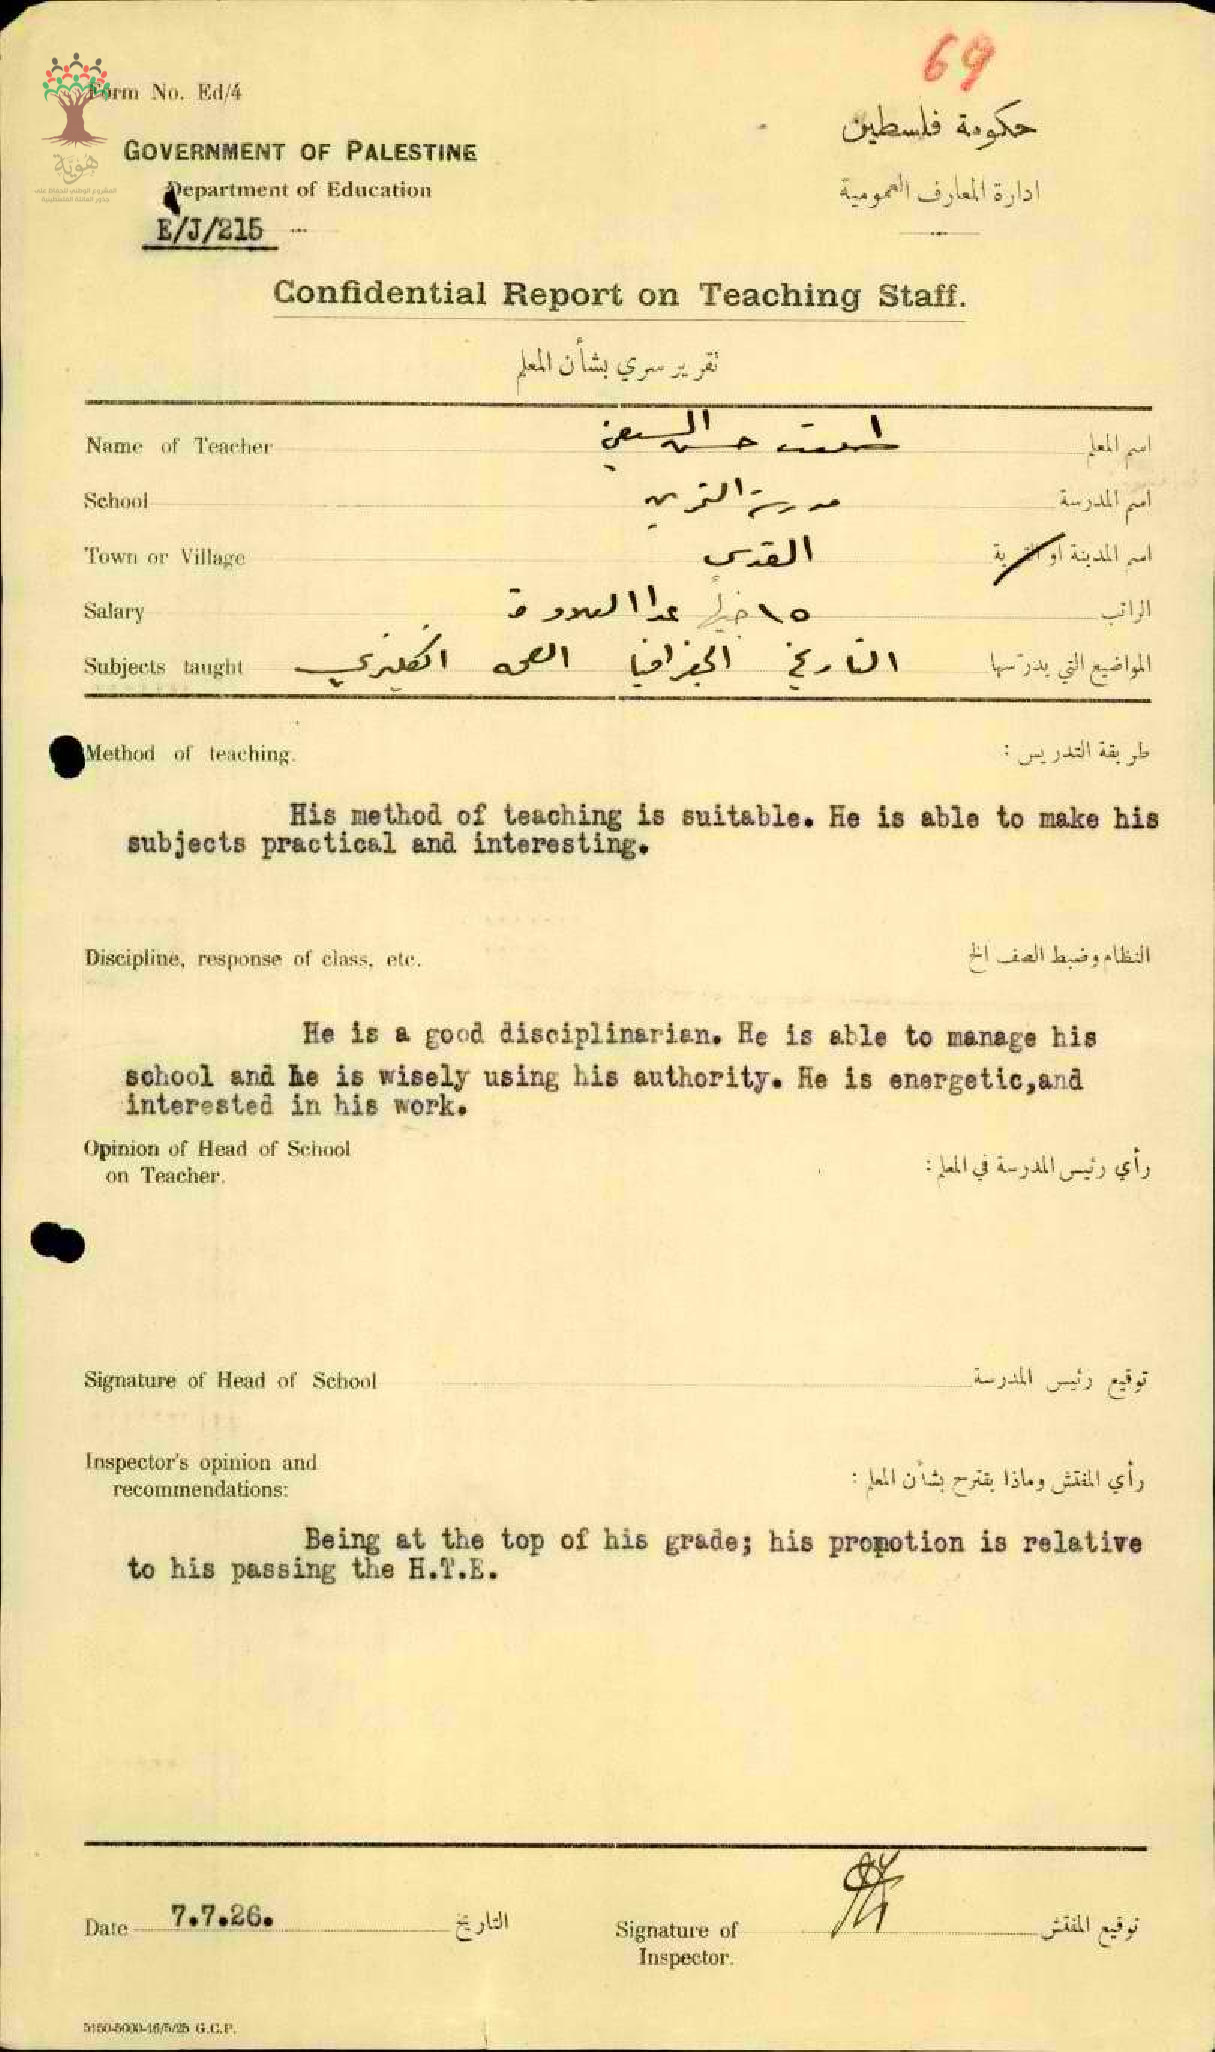 69
Form No. Ed/4
حكومة فلسطين
GOVERNMENT OF PALESTINE
Department of Education
ادارة المعارف العمومية
E/J/215
هوية
المشروع الوطني للحفاظ على
جذور العائلة الفلسطينية
Confidential Report on Teaching Staff.
تقرير سري بشأن المعلم
Name of Teacher حسن اسم المعلم
School مدرسة التمرين اسم المدرسة
Town or Village القدس اسم المدينة او القرية
Salary ١٥ جنيهاً عدا العلاوة الراتب
Subjects taught التاريخ الجغرافيا الصحه انكليزي المواضيع التي يدرسها
Method of teaching. طريقة التدريس :
His method of teaching is suitable. He is able to make his
subjects practical and interesting.
Discipline, response of class, etc. النظام وضبط الصف الخ
He is a good disciplinarian. He is able to manage his
school and he is wisely using his authority. He is energetic,and
interested in his work.
Opinion of Head of School
on Teacher. رأي رئيس المدرسة في المعلم :
Signature of Head of School توقيع رئيس المدرسة
Inspector's opinion and
recommendations: رأي المفتش وماذا يقترح بشأن المعلم :
Being at the top of his grade; his promotion is relative
to his passing the H.T.E.
Date 7.7.26. التاريخ Signature of
Inspector. توقيع المفتش
5150-5000-16/5/25 G.C.P.